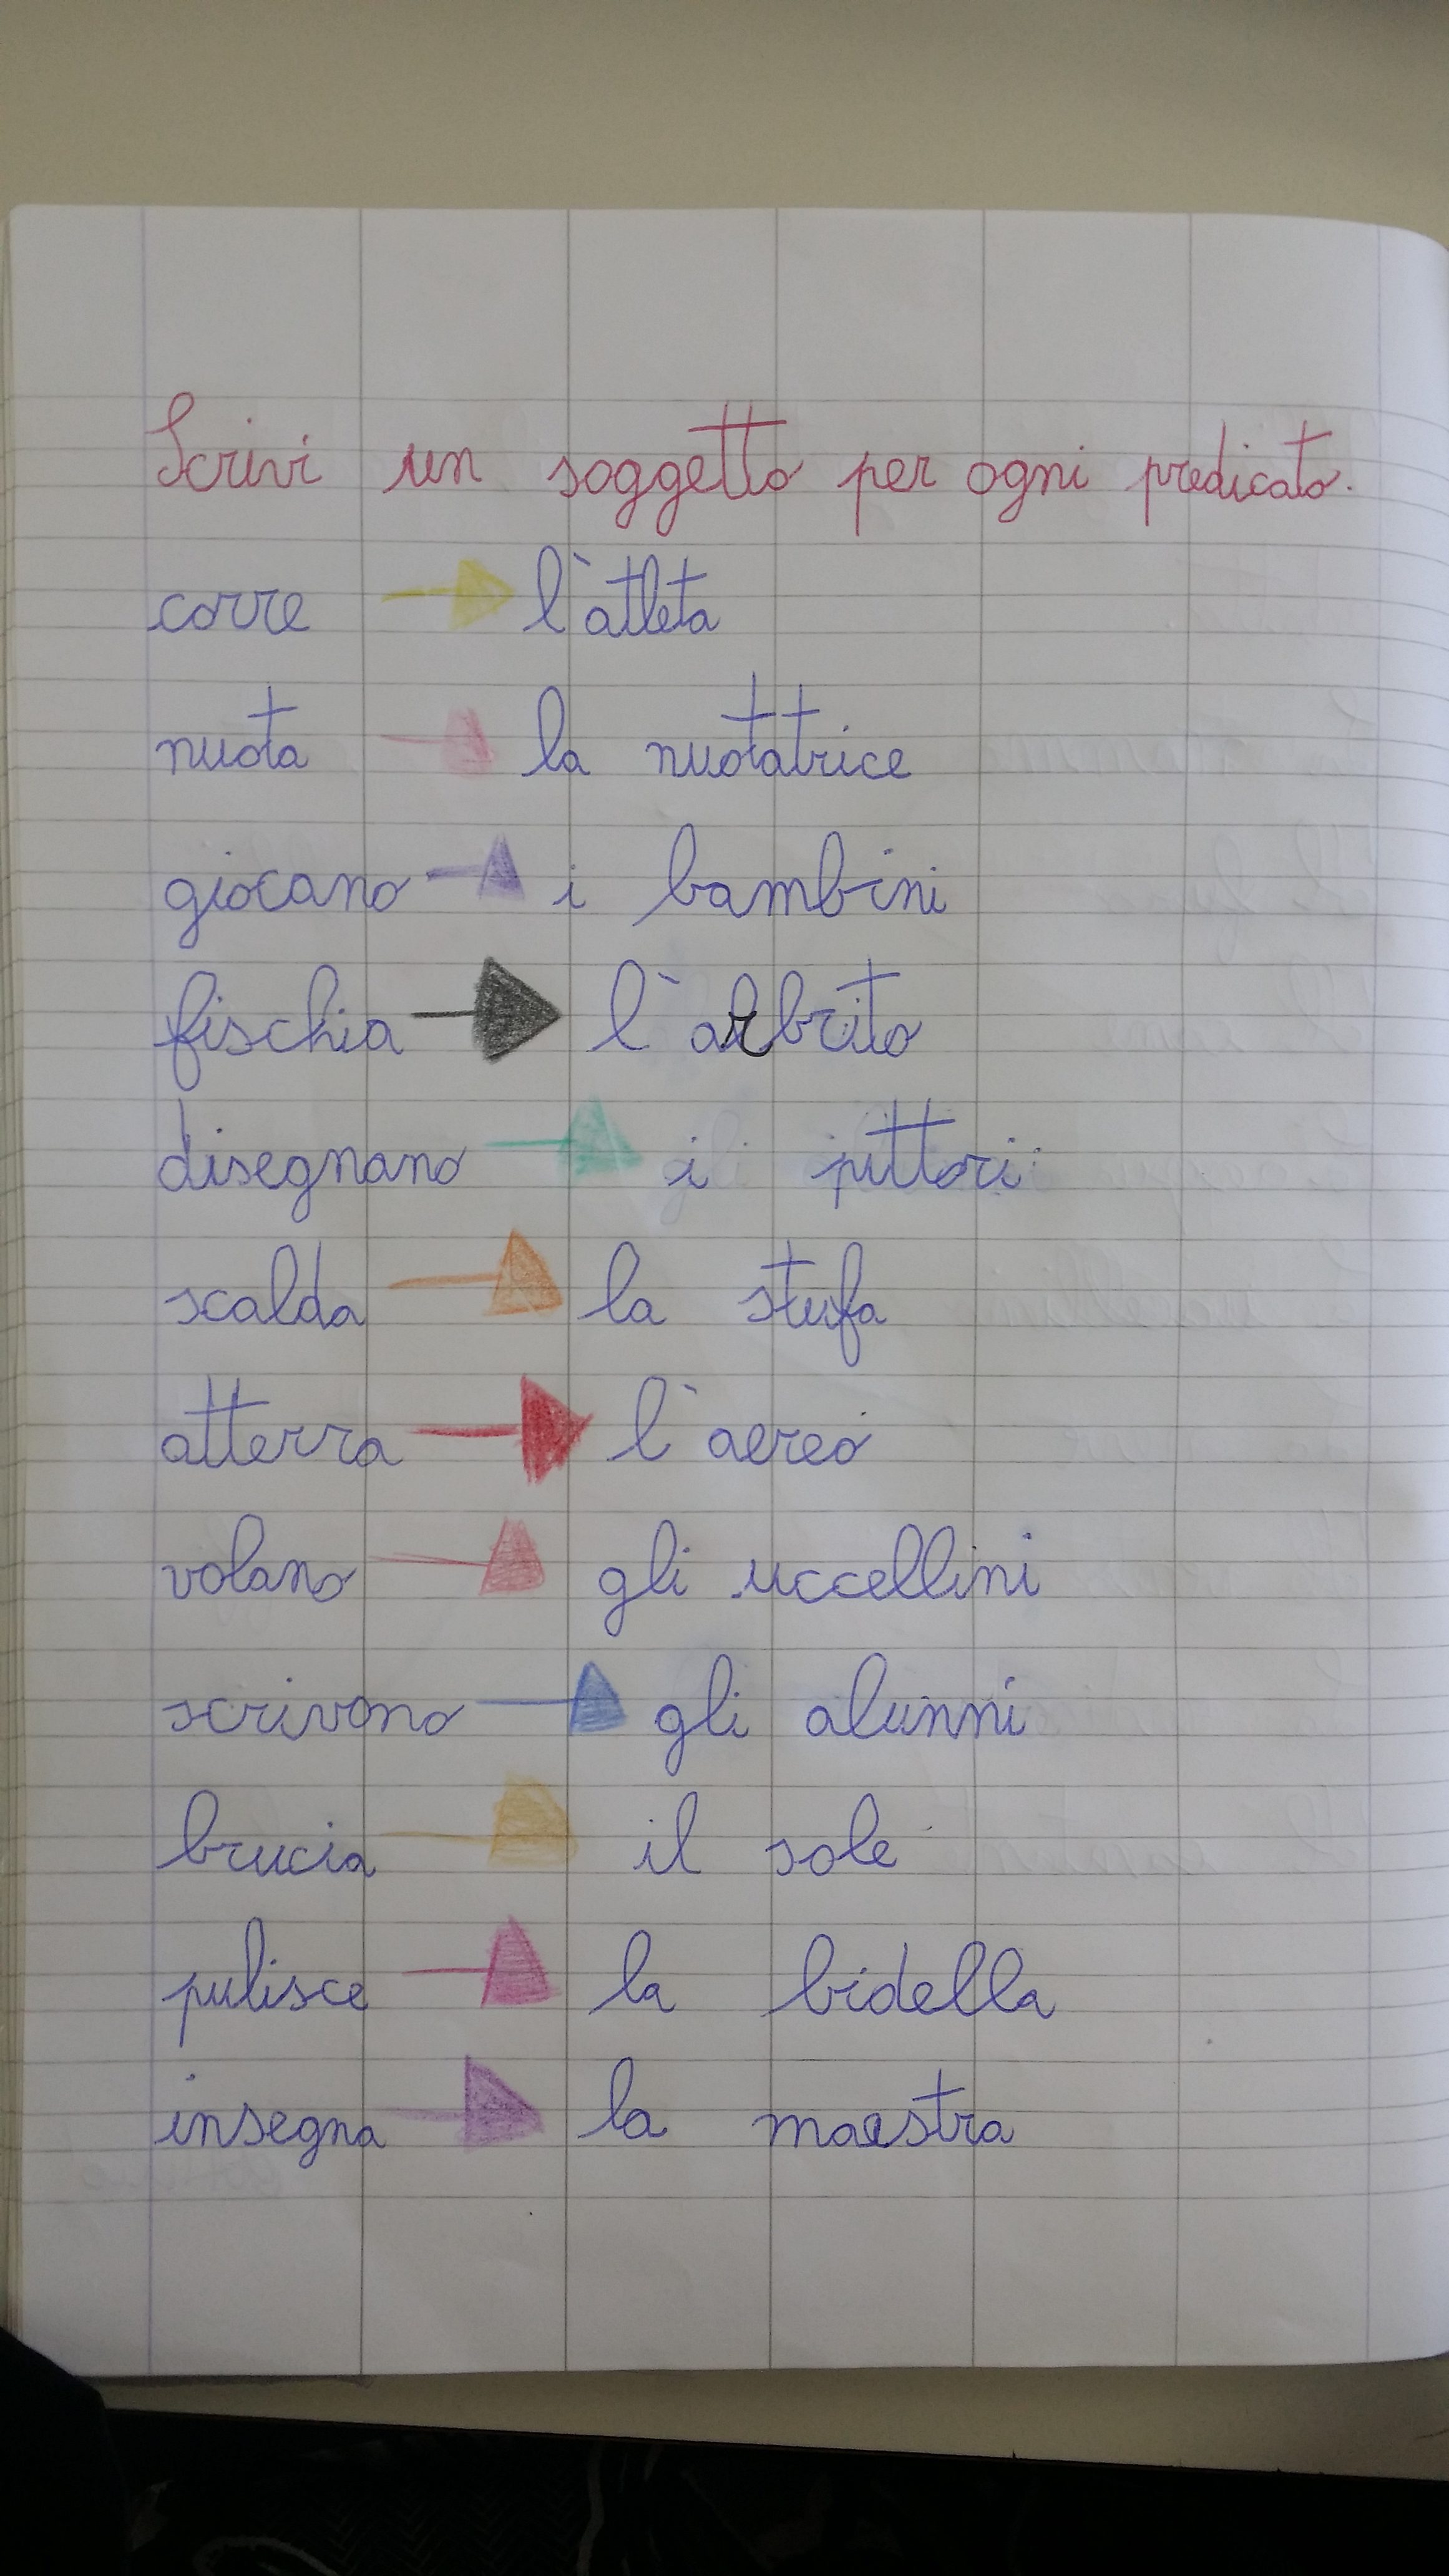 Scrivi un soggetto per ogni predicato.
corre → l'atleta
nuota → la nuotatrice
giocano → i bambini
fischia → l'arbrito
disegnano → i pittori
scalda → la stufa
atterra → l'aereo
volano → gli uccellini
scrivono → gli alunni
brucia → il sole
pulisce → la bidella
insegna → la maestra